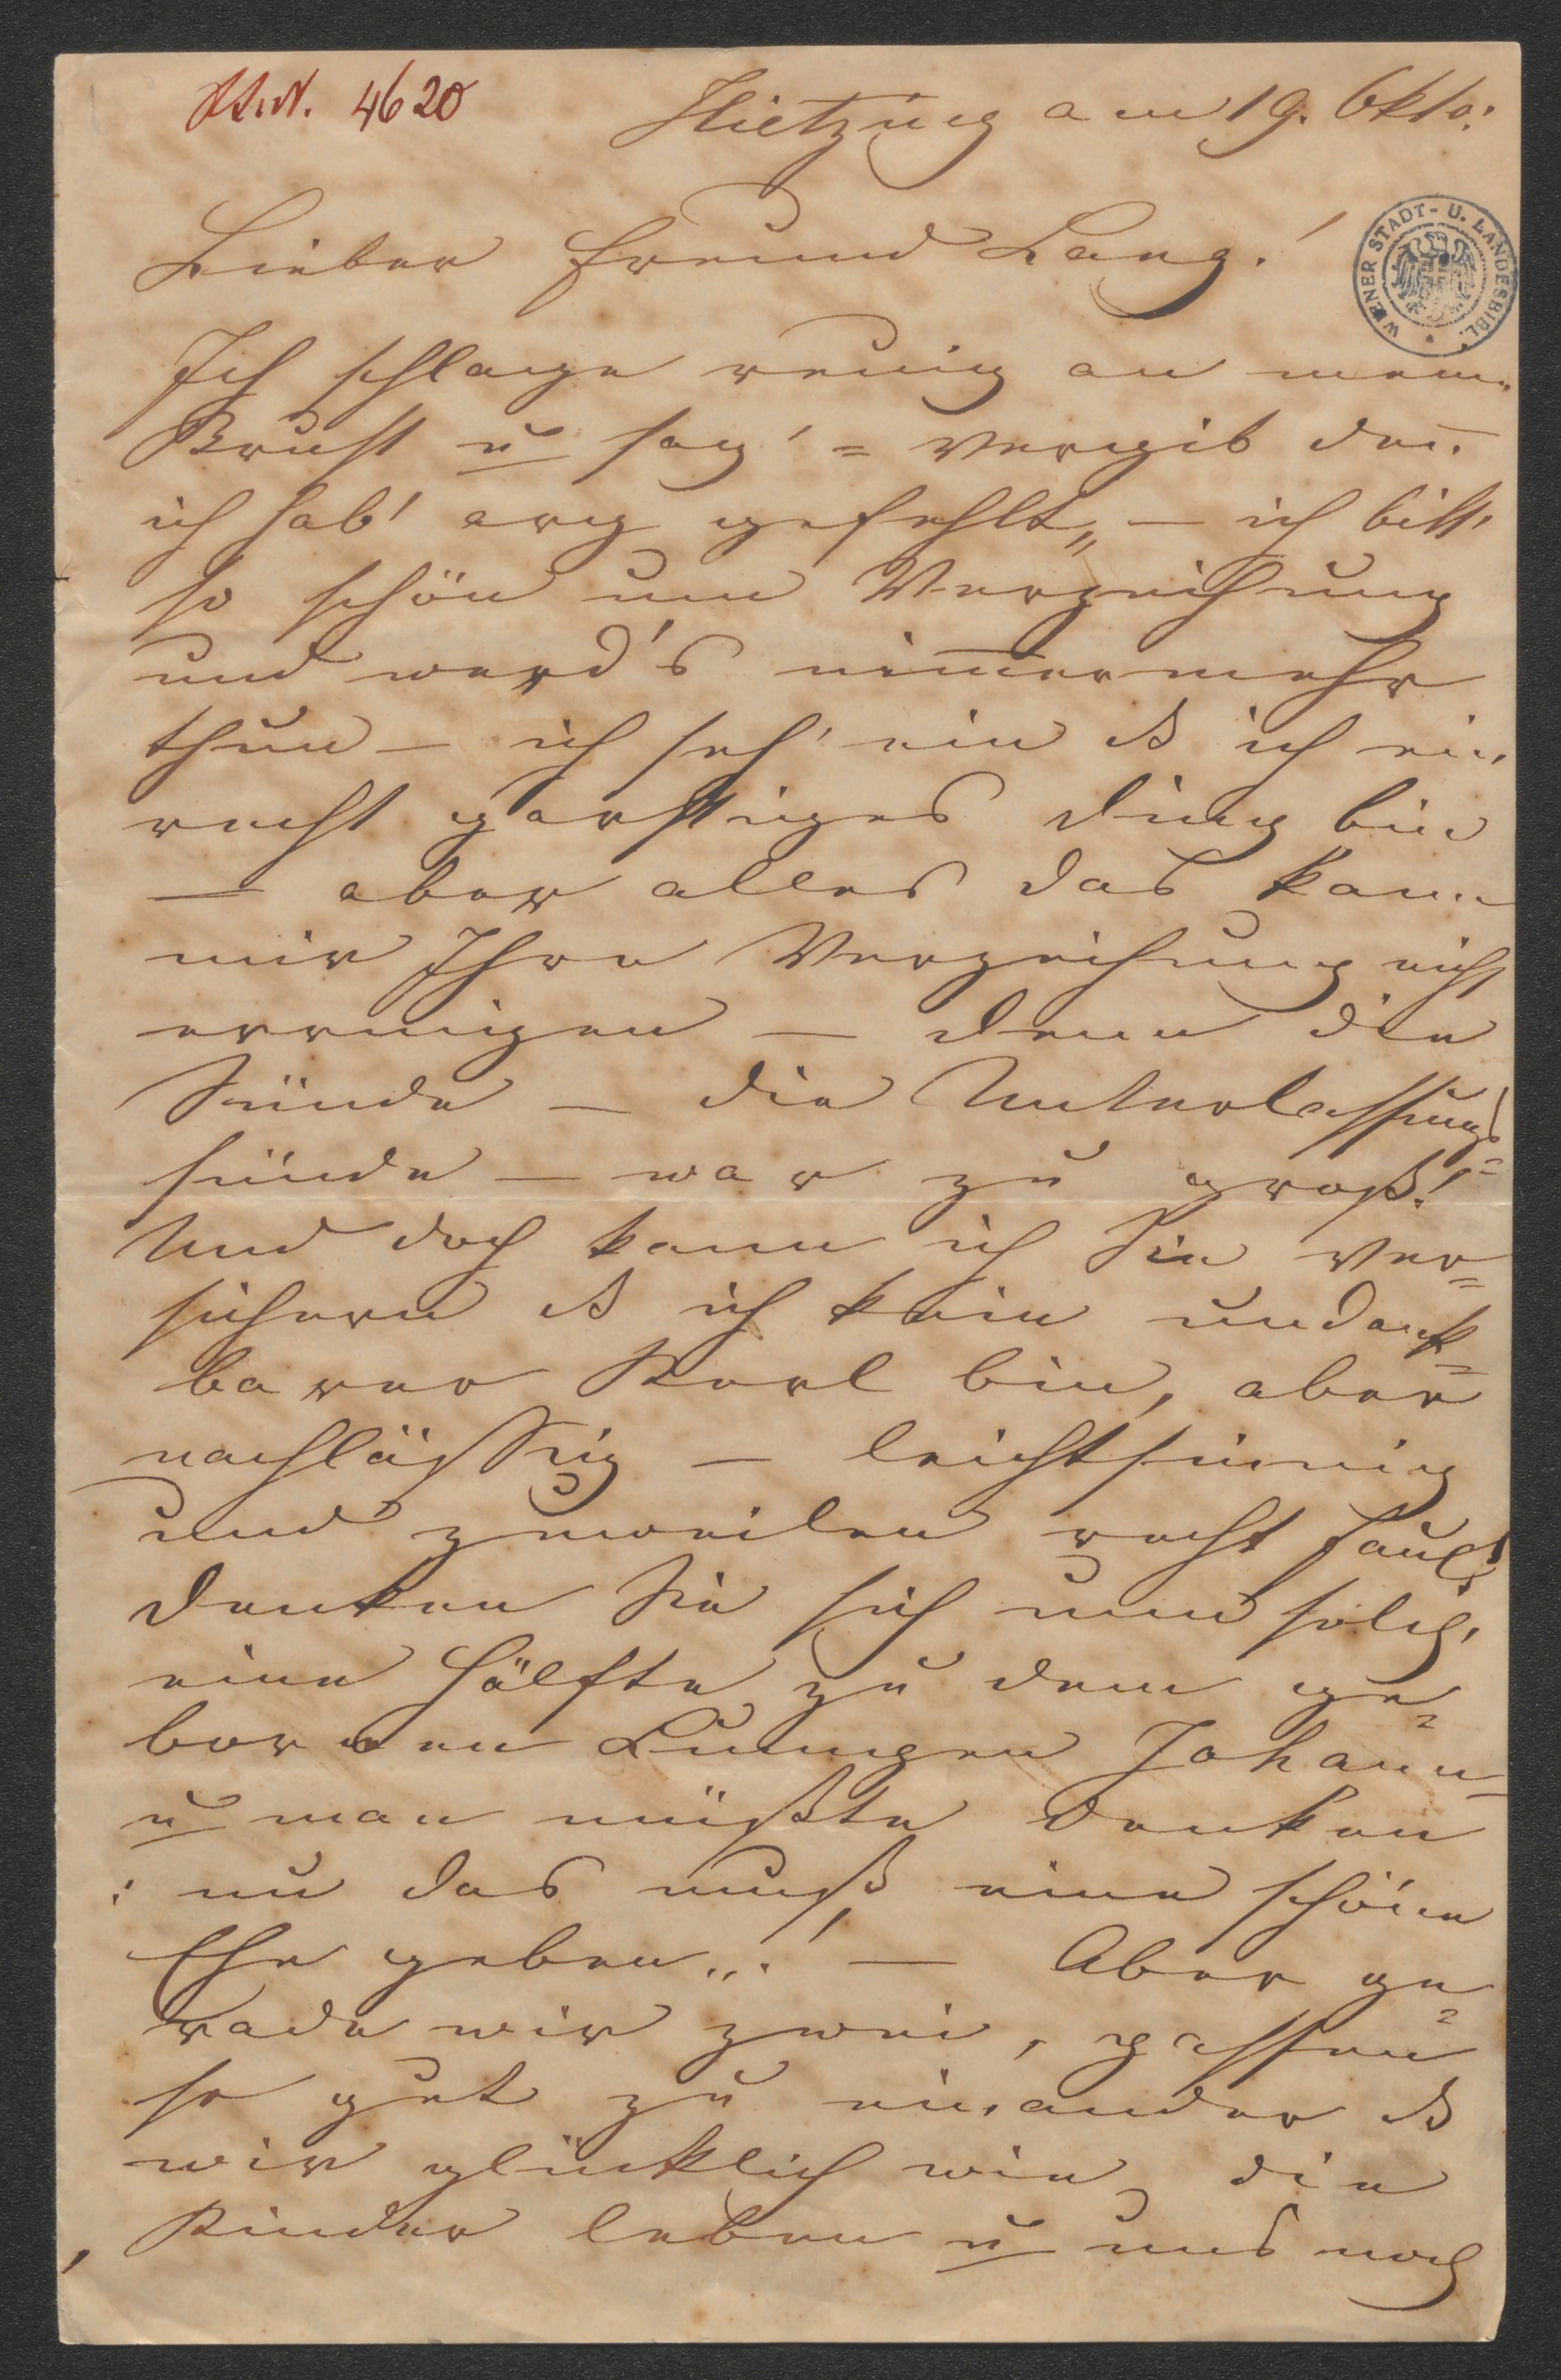 H.I.N. 4620
Hietzing am 19. Okto:
Lieber Freund Lang!
WIENER STADT- U. LANDESBIBL.
Ich schlage reuig an mein.
Brust u sag' = vergib den̄
ich hab' arg gefehlt„ — ich bitt'
so schön um Verzeihung
und werd's nim̄ermehr
thun — ich seh' ein ß ich ein
recht garstiges Ding bin
— aber alles das kann
mir Ihre Verzeihung nicht
erringen — denn die
Sünde — die Unterlassungs=
sünde — war zu groß!
Und doch kann ich Sie ver=
sichern ß ich kein undank=
barer Kerl bin, aber
nachlässig — leichtsinnig
und zuweilen recht faul!
Denken Sie sich nun solch'
eine Hälfte zu dem ge=
borenen Lumpen Johann
u man müßte denken
: nu das muß eine schöne
Ehe geben...! — Aber ge=
rade wir zwei, passen
so gut zu einander ß
wir glücklich wie die
Kinder leben u uns noch